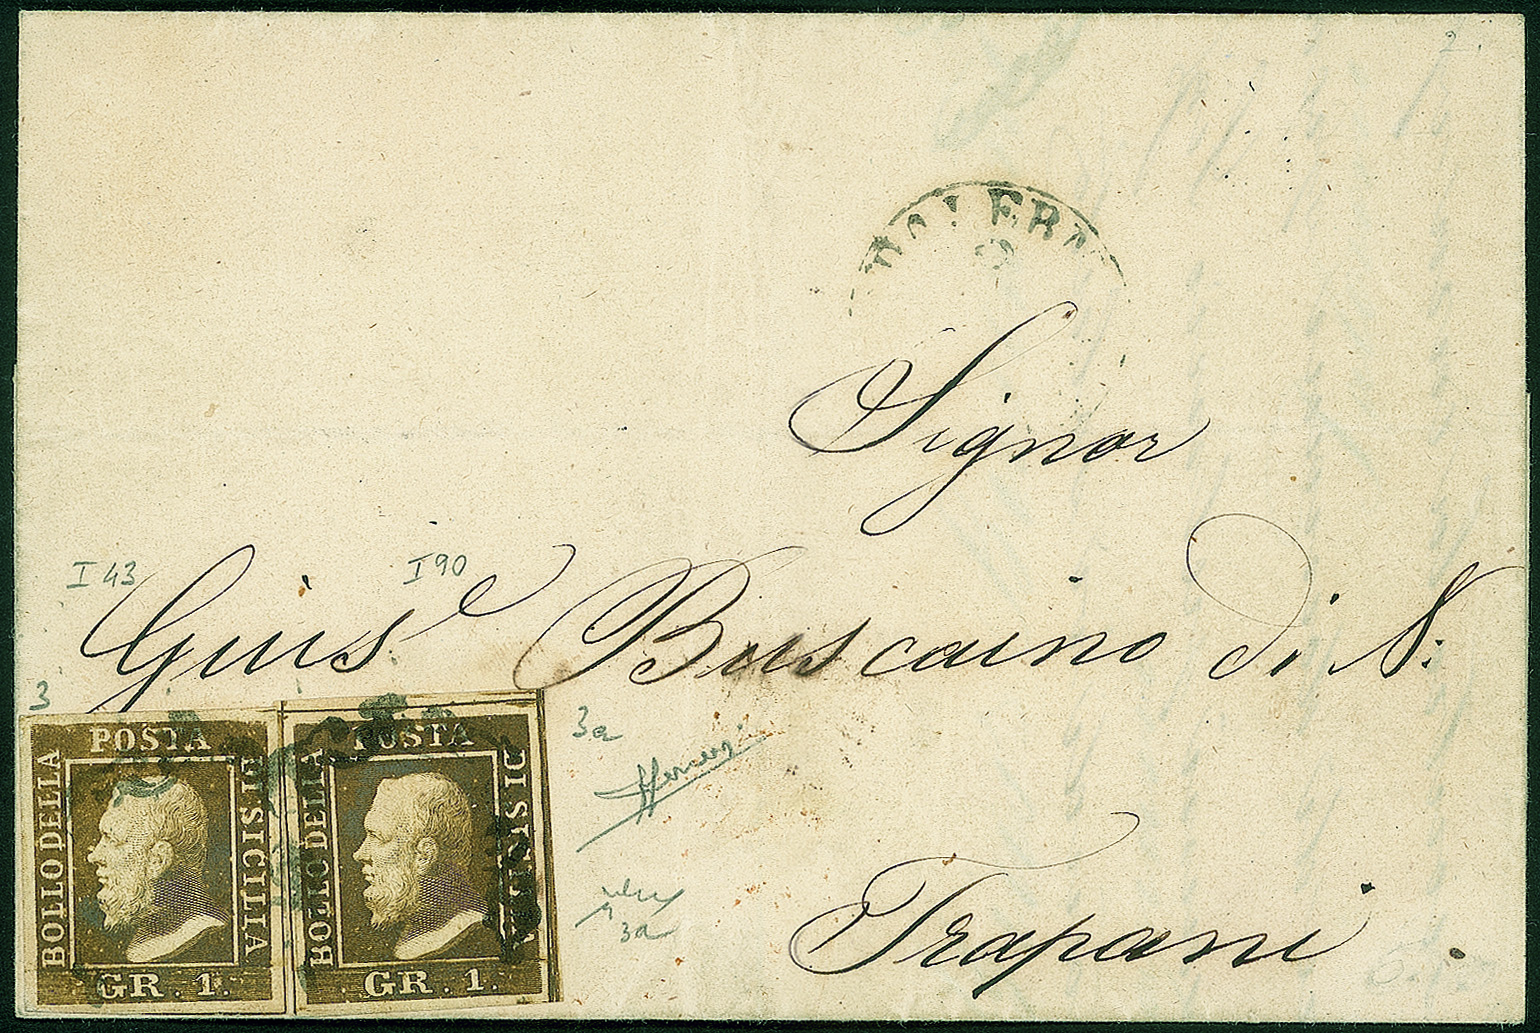 Signor
I 43 I 90
Giusᵉ Buscaino di N:
3 3a
POSTA
BOLLO DELLA
DI SICILIA
GR. 1.
POSTA
BOLLO DELLA
DI SICILIA
GR. 1.
3a
Trapani